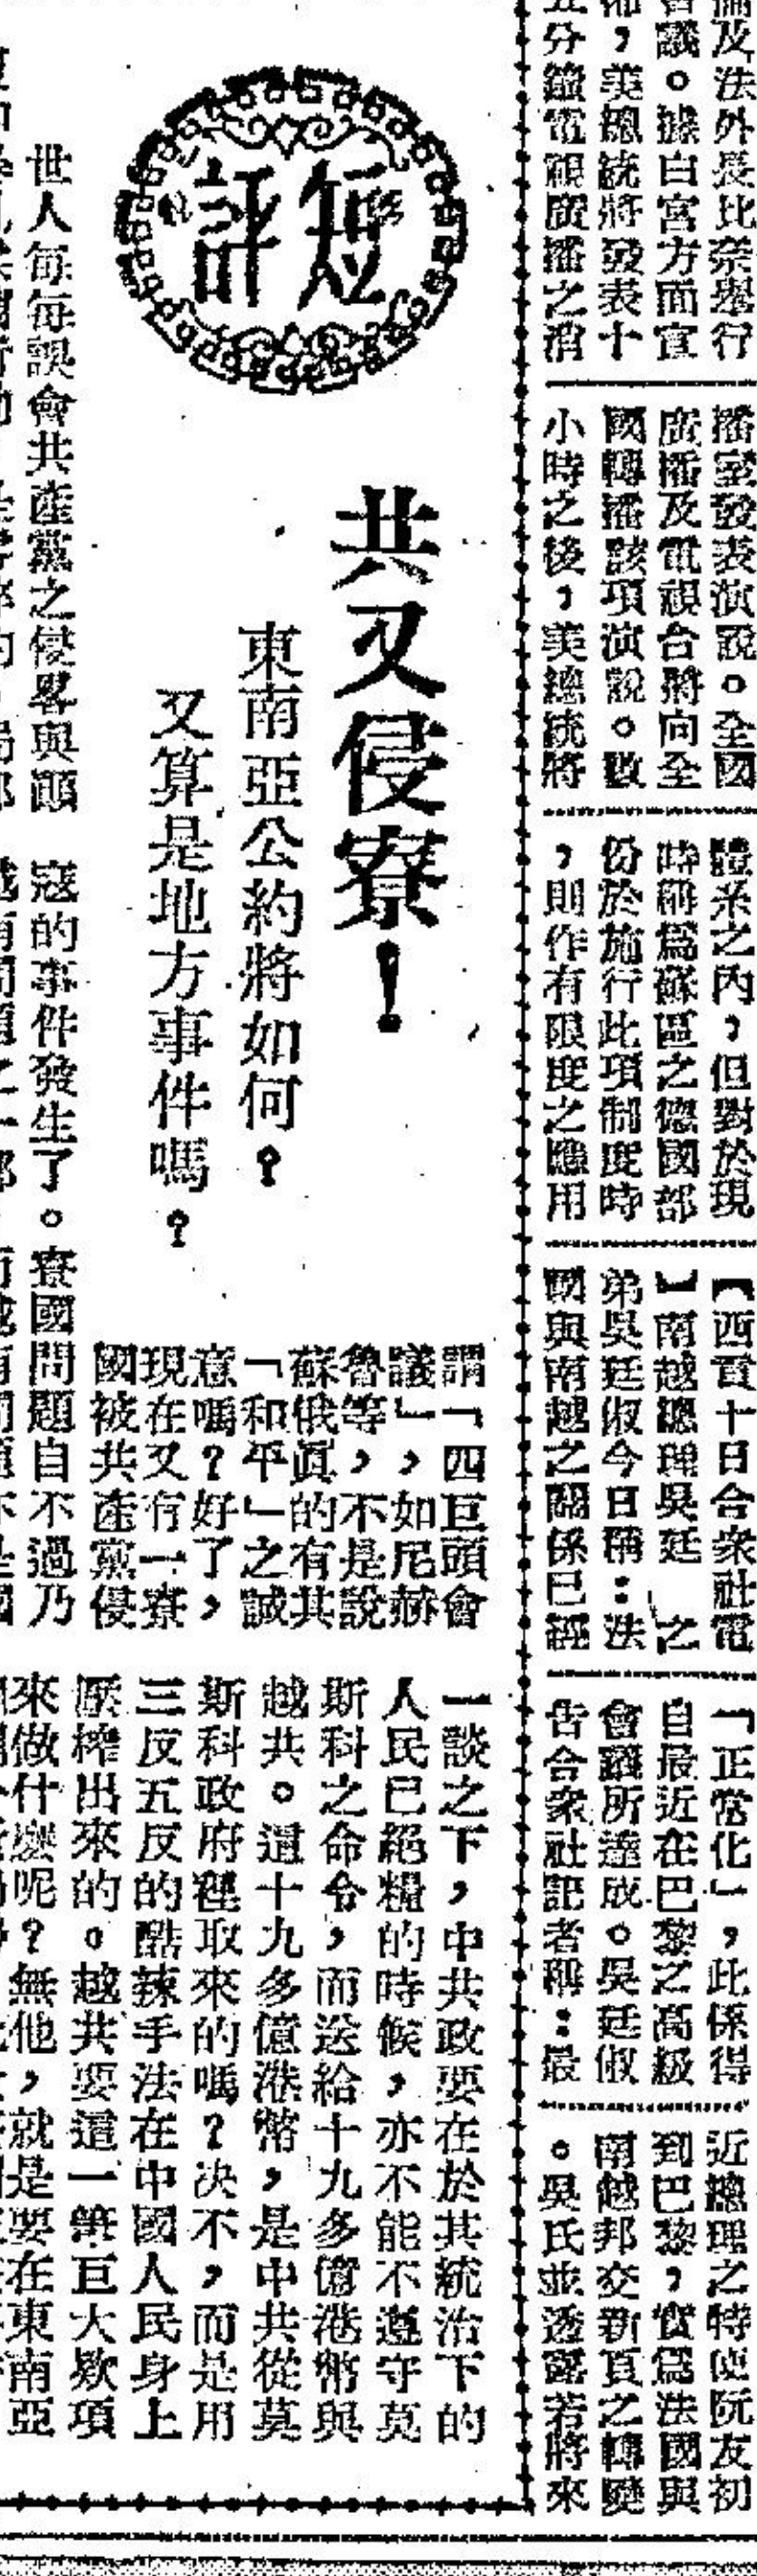 及法外長比奈舉行
會議。據白宮方面宣
佈,美總統將發表十
五分鐘電視廣播之消
播室發表演說。全國
廣播及電視台將向全
國轉播該項演說。數
小時之後,美總統將
體系之內,但對於現
時稱爲蘇區之德國部
份於施行此項制度時
,則作有限度之應用
【西貢十日合衆社電
】南越總理吳廷 之
弟吳廷俶今日稱:法
國與南越之關係已經
「正常化」,此係得
自最近在巴黎之高級
會議所達成。吳廷俶
告合衆社記者稱:最
近總理之特使阮友初
到巴黎,實爲法國與
南越邦交新頁之轉變
。吳氏並透露若將來
短評
共又侵寮!
東南亞公約將如何?
又算是地方事件嗎?
世人每每誤會共產黨之侵畧與顚
寇的事件發生了。寮國問題自不過乃
謂「四巨頭會
議」,如尼赫
魯等,不是說
蘇俄眞的有其
「和平」之誠
意嗎?好了,
現在又有一寮
國被共產黨侵
一談之下,中共政要在於其統治下的
人民已絕糧的時候,亦不能不遵守莫
斯科之命令,而送給十九多億港幣與
越共。這十九多億港幣,是中共從莫
斯科政府裡取來的嗎?决不,而是用
三反五反的酷辣手法在中國人民身上
壓榨出來的。越共要這一筆巨大欵項
來做什麽呢?無他,就是要在東南亞